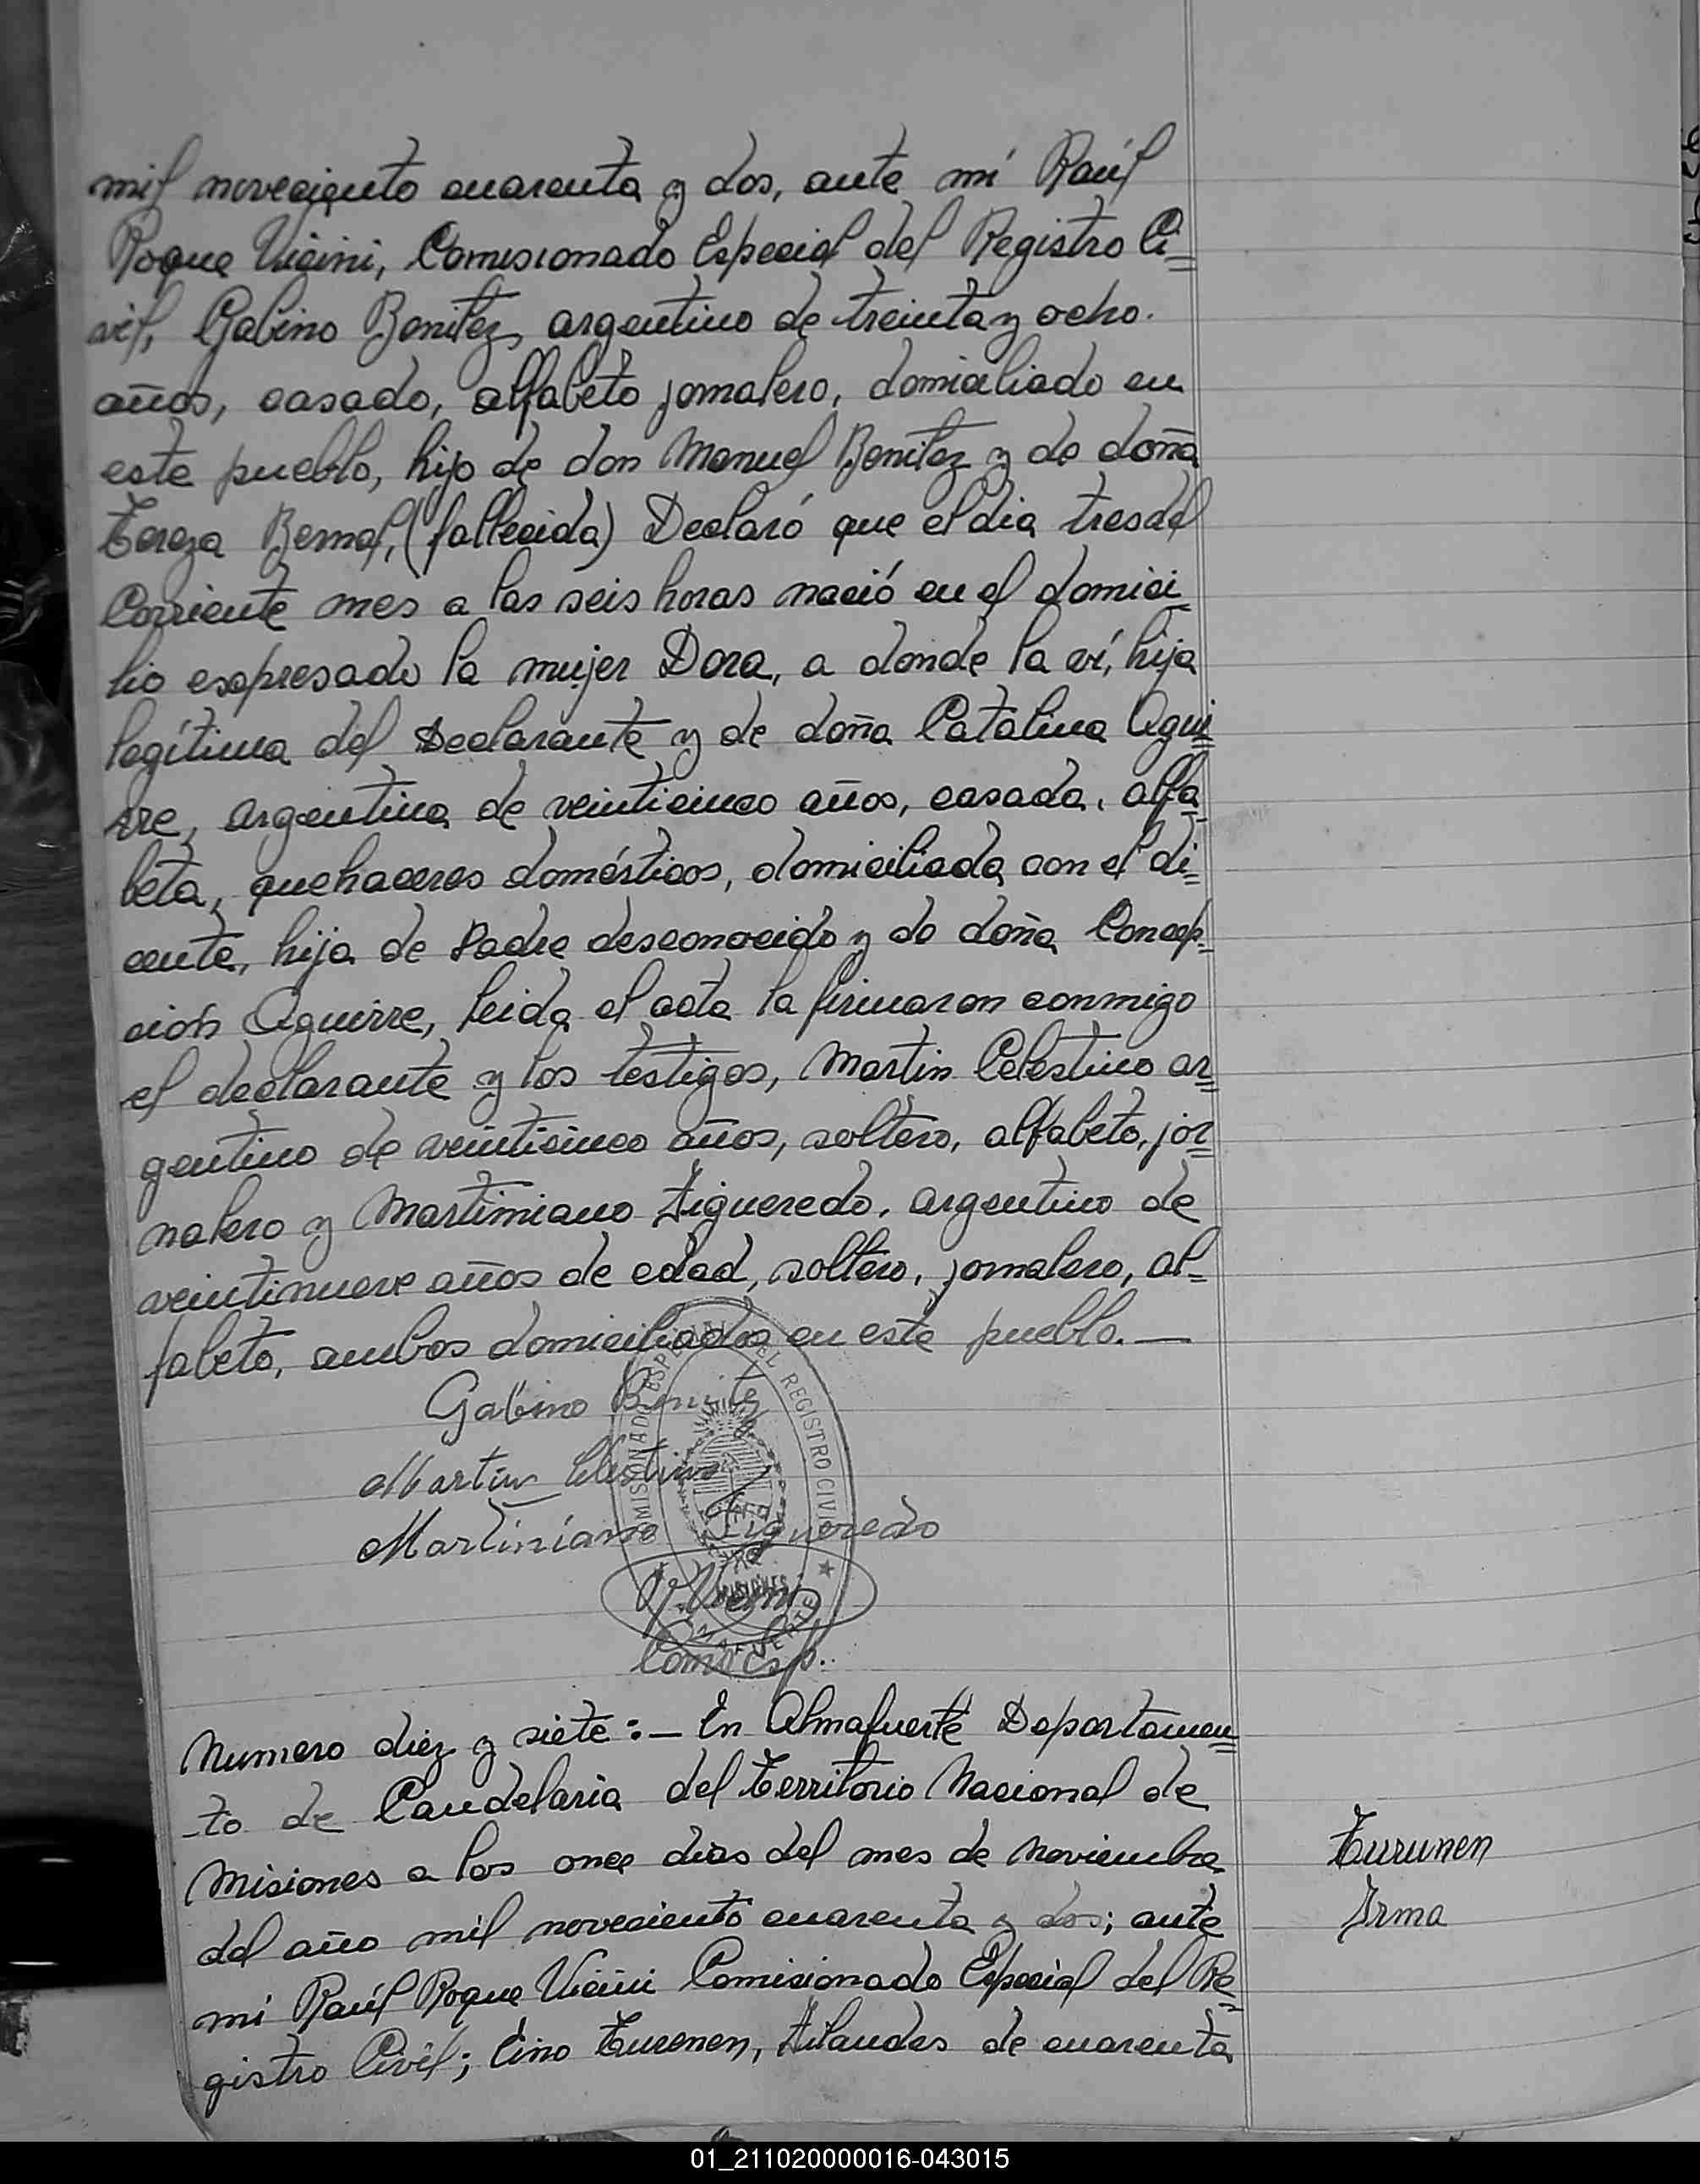 mil noveciento cuarenta y dos, ante mí Raúl
Roque Vicini, Comisionado Especial del Registro Ci=
vil, Gabino Benitez, argentino de treinta y ocho.
años, casado, alfabeto jornalero, domiciliado en
este pueblo, hijo de don Manuel Benitez y de doña
Tereza Bernal, (fallecida) Declaró que el dia tres del
Corriente mes a las seis horas nació en el domici
lio esxpresado la mujer Dora, a donde la ví, hija
legítima del Declarante y de doña Catalina Agui=
rre, argentina de veinticinco años, casada, alfa
beta, quehaceres domésticos, domiciliada con el di=
cente, hija de Padre desconocido y de doña Concep-
ción Aguirre, leida el acta la firmaron conmigo
el declarante y los testigos, Martin Celestino ar=
gentino de veinticinco años, soltero, alfabeto, jor=
nalero y Martimiano Figueredo, argentino de
veintinueve años de edad, soltero, jornalero, al=
fabeto, ambos domiciliados en este pueblo.—
Gabino Benitez
Martin Celestino
Martiniano Figueredo
R. Vicini
Com. Esp.
COMISIONADO ESPECIAL DEL REGISTRO CIVIL
MISIONES
ALMAFUERTE
Numero diez y siete:— En Almafuerte Departamen=
-to de Candelaria del Territorio Nacional de
Misiones a los once dias del mes de Noviembre
del año mil noveciento cuarenta y dos; ante
mi Raúl Roque Vicini Comisionado Especial del Re=
gistro Civil; Eino Turonen, Filandes de cuarenta
Turunen
Irma
01_211020000016-043015